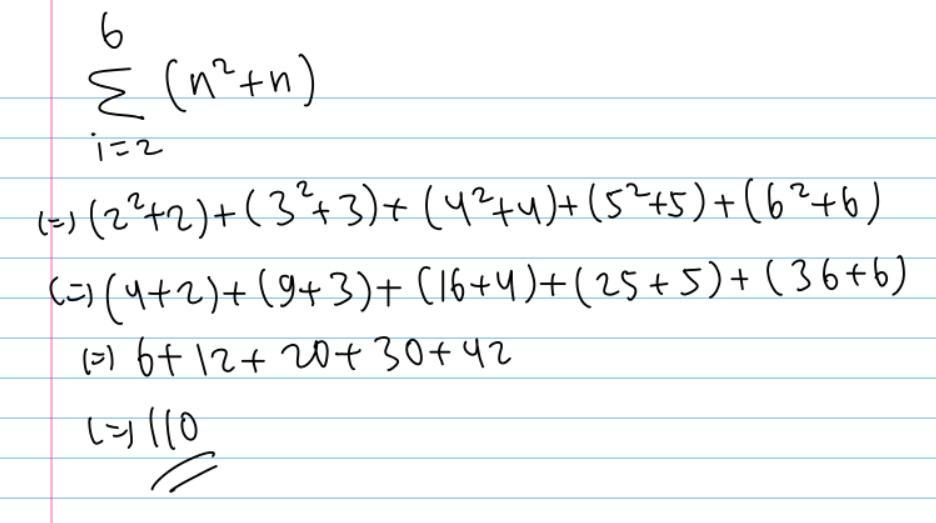 6
Σ (n²+n)
i=2
(=) (2²+2)+(3²+3)+(4²+4)+(5²+5)+(6²+6)
(=) (4+2)+(9+3)+(16+4)+(25+5)+(36+6)
(=) 6+12+20+30+42
(=) 110